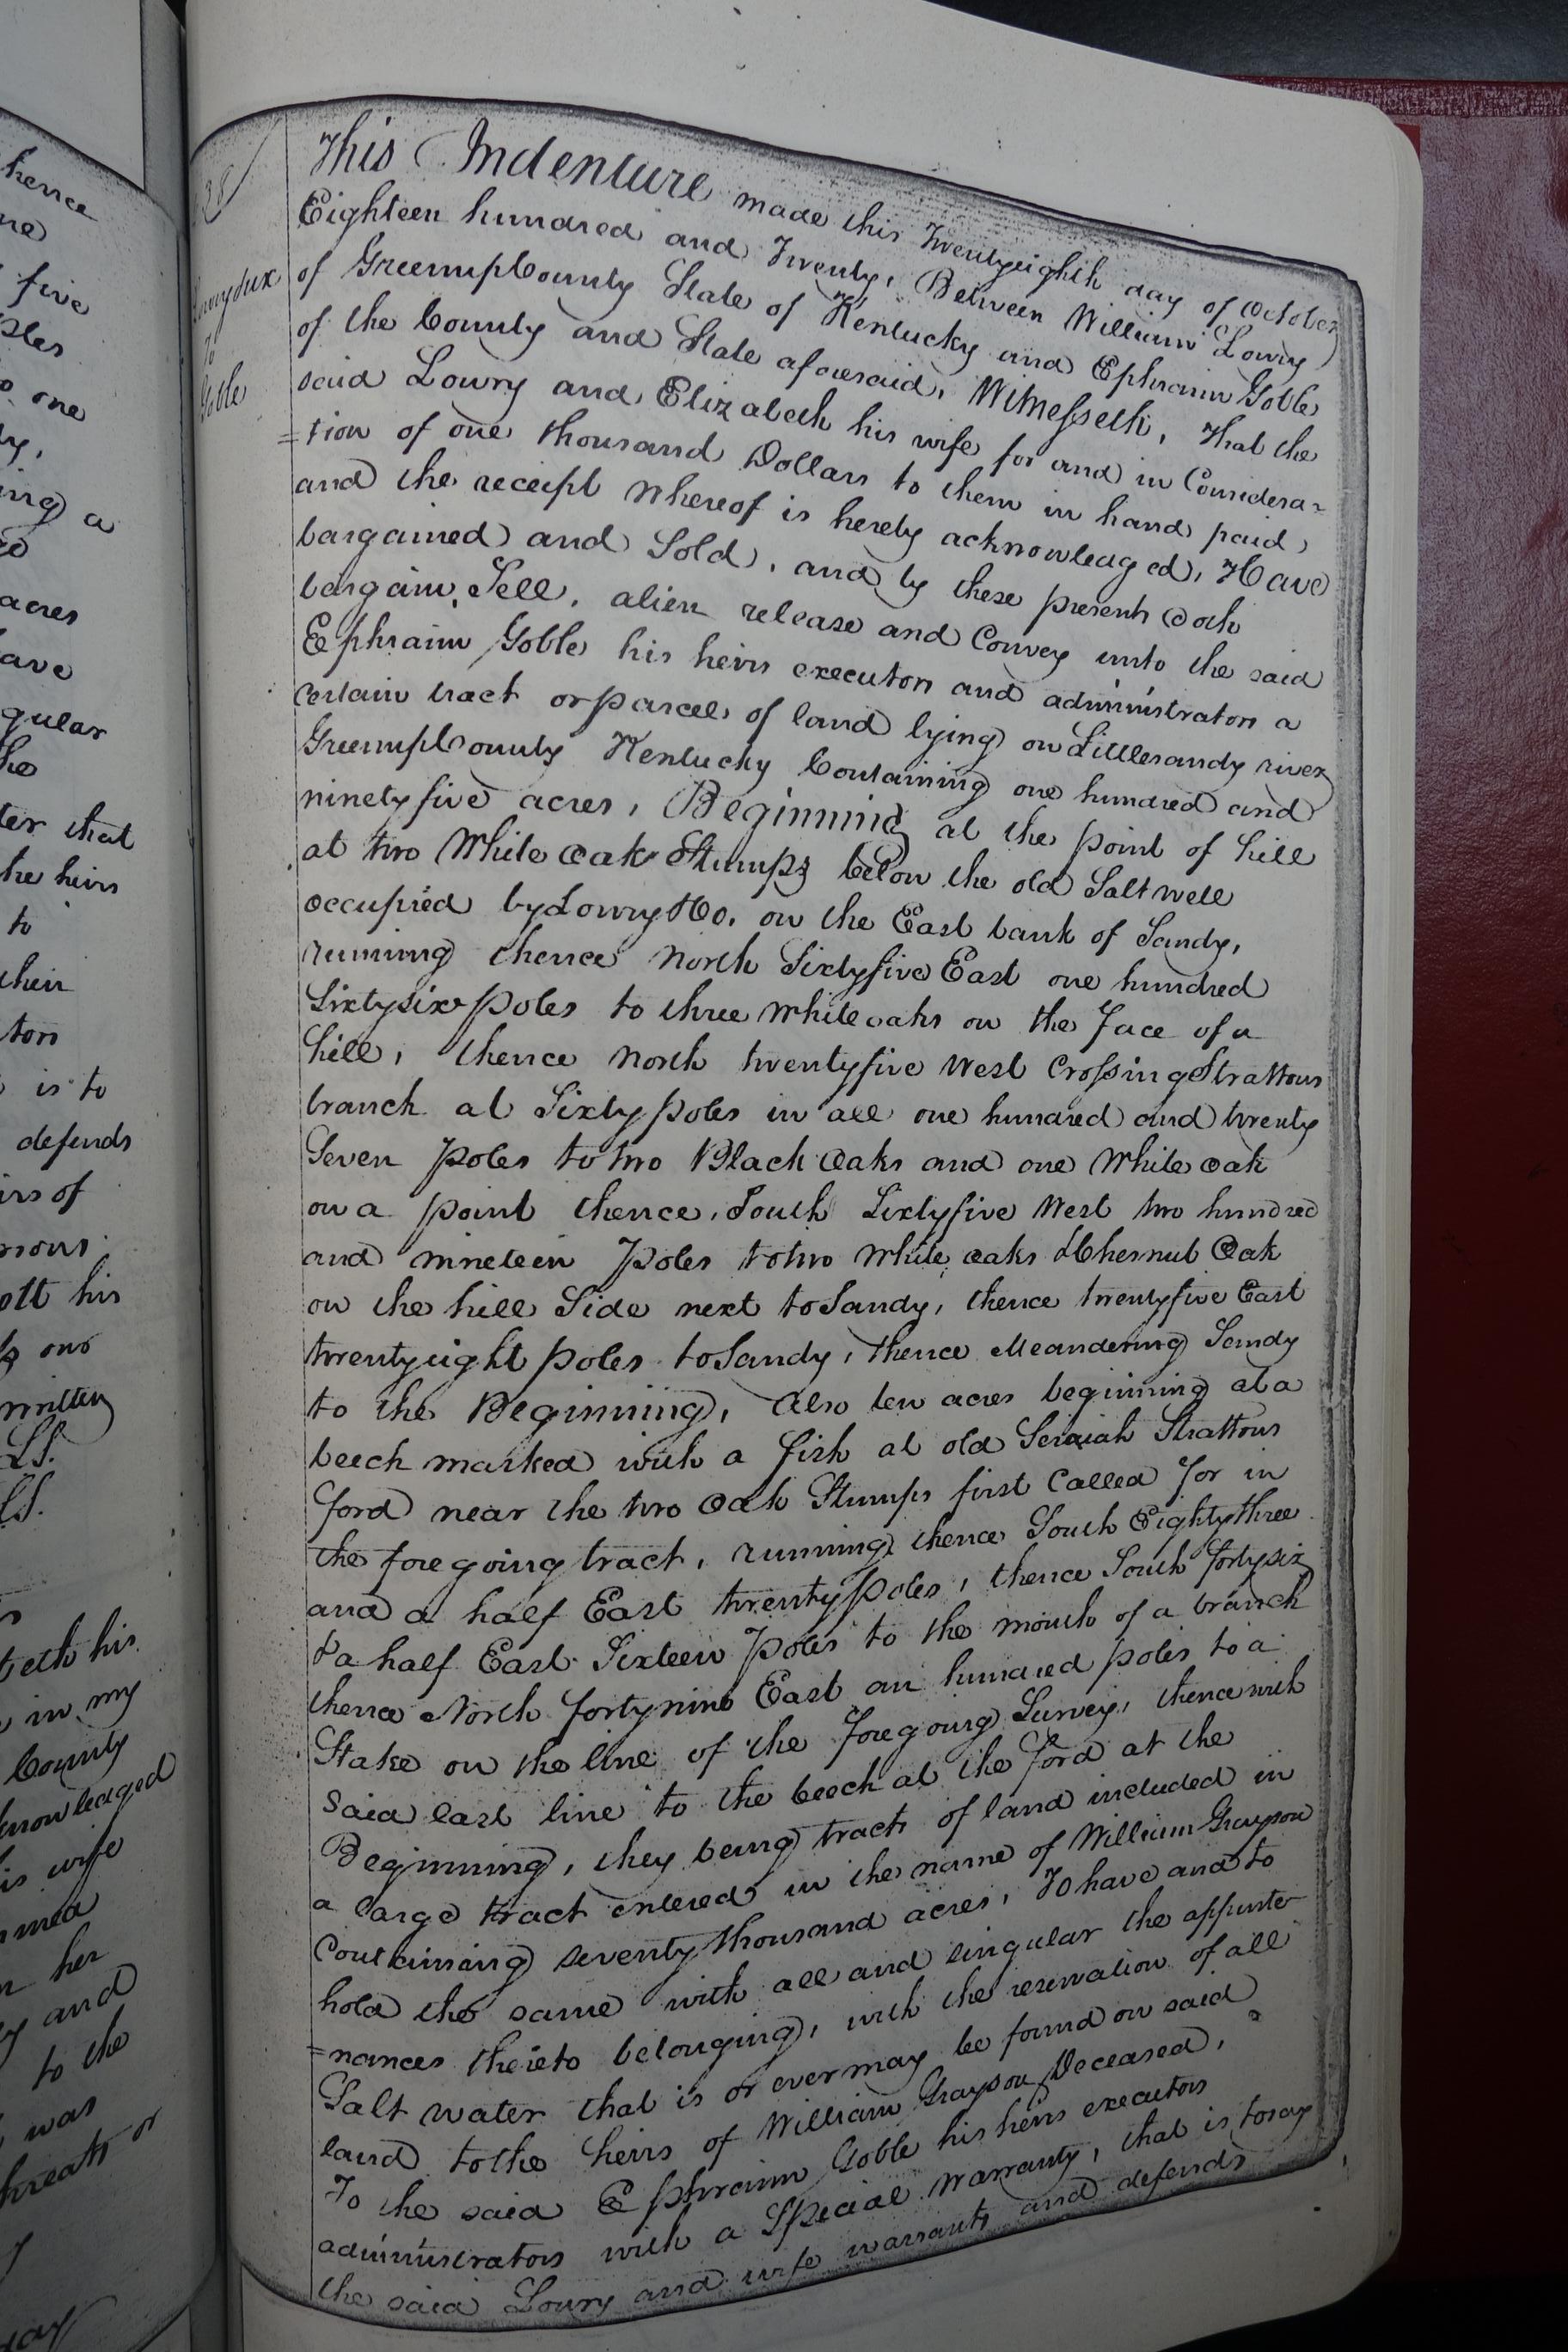 hence
five
one
ing a
acres
ave
gular
ter that
he heirs
to
their
tors
is to
defends
irs of
ott his
written
LS.
LS.
eth his
in my
County
knowledged
is wife
her
and
to the
was
threats or
Lowry & ux
to
Goble
This Indenture made this Twentyeighth day of October
Eighteen hundred and Twenty, Between William Lowry
of Greenup County State of Kentucky and Ephraim Goble
of the County and State aforesaid, Witnesseth, That the
said Lowry and Elizabeth his wife for and in Considera=
=tion of one thousand Dollars to them in hand paid,
and the receipt whereof is hereby acknowledged, Have
bargained and Sold, and by these presents doth
bargain, Sell, alien release and Convey unto the said
Ephraim Goble his heirs executors and administrators a
certain tract or parcel of land lying on Littlesandy river
Greenup County Kentucky Containing one hundred and
ninetyfive acres, Beginning at the point of hill
at two White Oak Stumps below the old Salt well
occupied by Lowry & Co. on the East bank of Sandy,
running thence North Sixtyfive East one hundred
Sixtysix poles to three white oaks on the face of a
hill, thence North twentyfive West Crossing Strattons
branch at Sixty poles in all one hundred and twenty
Seven poles to two Black Oaks and one White Oak
on a point thence, South Sixtyfive West two hundred
and nineteen Poles to two White oaks & Chesnut Oak
on the hill Side next to Sandy, thence twentyfive East
twentyeight poles to Sandy, thence Meandering Sandy
to the Beginning, Also ten acres beginning at a
beech marked with a fish at old Seraiah Strattons
ford near the two Oak Stumps first Called for in
the foregoing tract, running thence South Eightythree
and a half East twenty poles, thence South fortysix
& a half East Sixteen poles to the mouth of a branch
thence North fortynine East an hundred poles to a
Stake on the line of the foregoing Survey, thence with
said last line to the beech at the ford at the
Beginning, they being tracts of land included in
a large tract entered in the name of William Grayson
Containing seventy thousand acres, To have and to
hold the same with all and singular the appurte
=nances thereto belonging, with the reservation of all
Salt water that is or ever may be found on said
land to the heirs of William Grayson Deceased,
To the said Ephraim Goble his heirs executors
administrators with a Special Warranty, that is to say
the said Lowry and wife warrants and defends